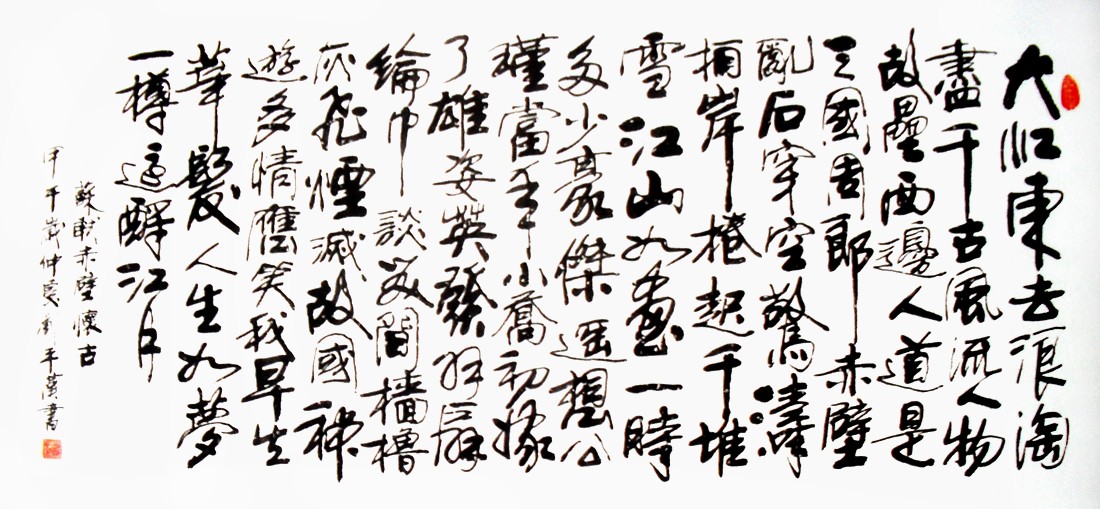 大江東去浪淘
盡千古風流人物
故壘西邊人道是
三國周郎赤壁
亂石穿空驚濤
拍岸捲起千堆
雪江山如畫一時
多少豪傑遥想公
瑾當年小喬初嫁
了雄姿英發羽扇
綸巾談笑間檣櫓
灰飛煙滅故國神
遊多情應笑我早生
華髮人生如夢
一樽還酹江月
蘇軾赤壁懷古
甲午歲仲夏平書